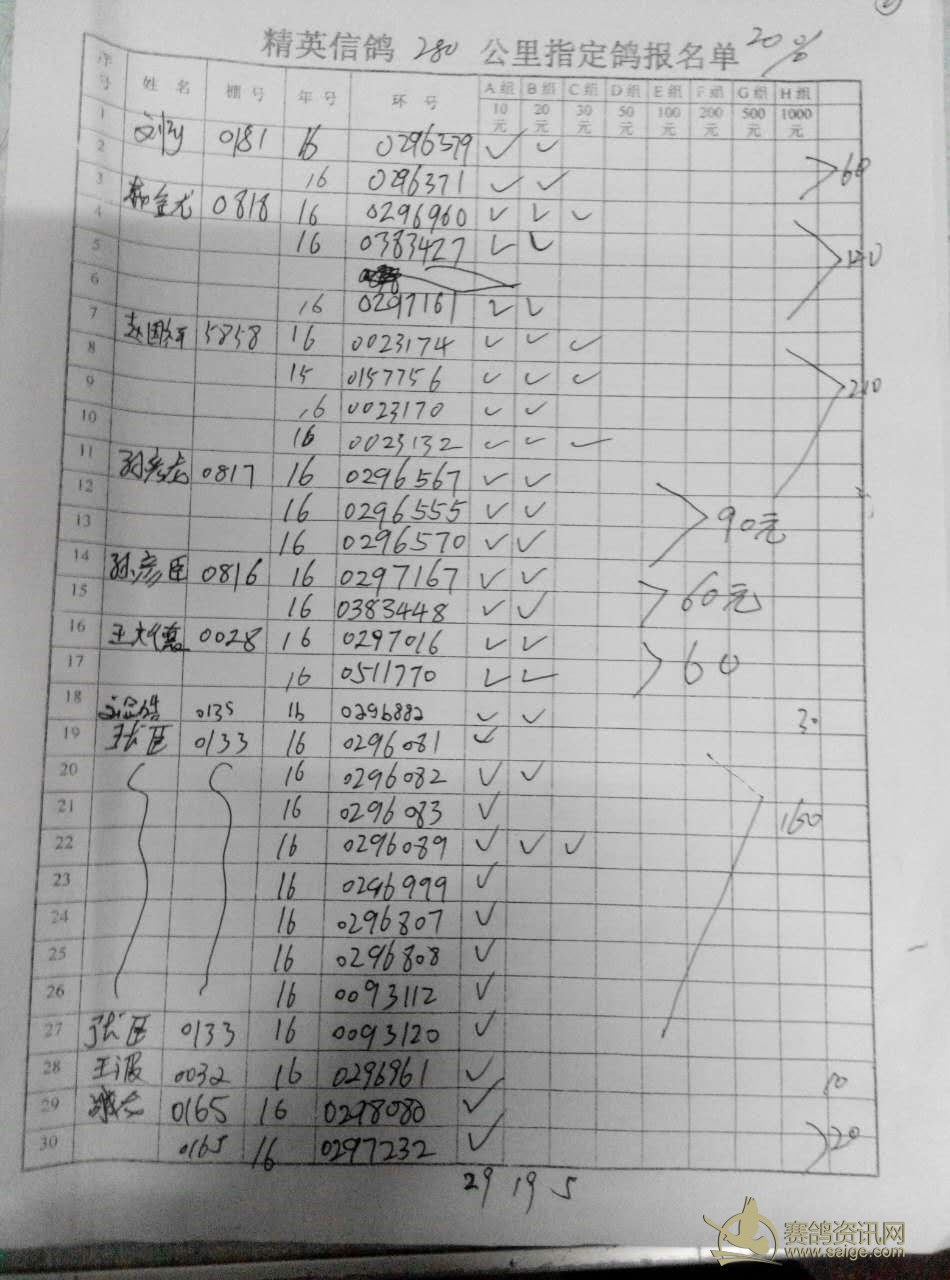 精英信鸽 280 公里指定鸽报名单 20%
序号 姓名 棚号 年号 环号 A组 B组 C组 D组 E组 F组 G组 H组
10元 20元 30元 50元 100元 200元 500元 1000元
1 0181 16 0296379 ✓ ✓
2 16 0296371 ✓ ✓ 60
3 0818 16 0296960 ✓ ✓ ✓
4 16 0383427 ✓ ✓
5
6 16 0297161 ✓ ✓
7 5858 16 0023174 ✓ ✓ ✓
8 15 0157756 ✓ ✓ ✓
9 16 0023170 ✓ ✓ 210
10 16 0023132 ✓ ✓ ✓
11 0817 16 0296567 ✓ ✓
12 16 0296555 ✓ ✓ 90元
13 16 0296570 ✓ ✓
14 孙彦臣 0816 16 0297167 ✓ ✓
15 16 0383448 ✓ ✓ 60元
16 0028 16 0297016 ✓ ✓
17 16 0511770 ✓ ✓ 60
18 0135 16 0296882 ✓ ✓ 30
19 0133 16 0296081 ✓
20 16 0296082 ✓ ✓
21 16 0296083 ✓
22 16 0296089 ✓ ✓ ✓ 160
23 16 0296999 ✓
24 16 0296807 ✓
25 16 0296808 ✓
26 16 0093112 ✓
27 0133 16 0093120 ✓
28 0032 16 0296961 ✓ 10
29 0165 16 0298080 ✓
30 0165 16 0297232 ✓ 20
29 19 5
赛鸽资讯网
www.saige.com